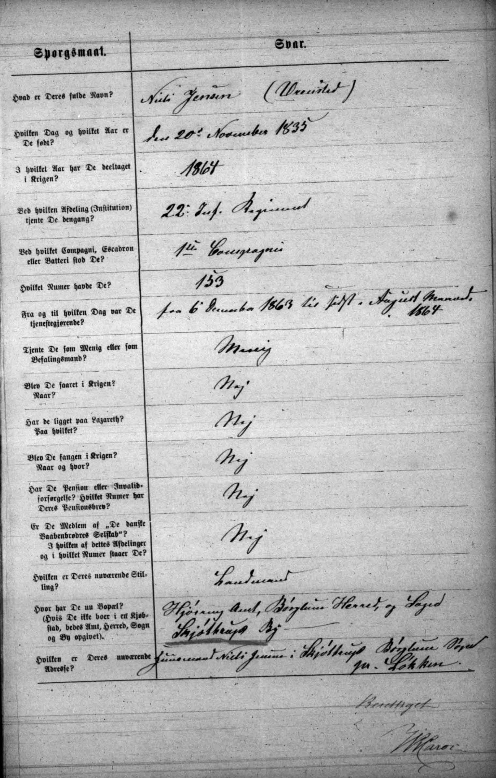 Spørgsmaal.
Svar.
Hvad er Deres fulde Navn?
Niels Jensen (Vrensted)
Hvilken Dag og hvilket Aar er
De født?
den 20de November 1835
I hvilket Aar har De deeltaget
i Krigen?
1864
Ved hvilken Afdeling (Institution)
tjente De dengang?
22. Inf. Regiment
Ved hvilket Compagni, Escadron
eller Batteri stod De?
1ste Compagni
Hvilket Numer havde De?
153
Fra og til hvilken Dag var De
tjenestegjørende?
fra 6 December 1863 til sidst i August Maaned
1864
Tjente De som Menig eller som
Befalingsmand?
Menig
Blev De saaret i Krigen?
Naar?
Nej
Har De ligget paa Lazareth?
Paa hvilket?
Nej
Blev De fangen i Krigen?
Naar og hvor?
Nej
Har De Pension eller Invalid-
forsørgelse? Hvilket Numer har
Deres Pensionsbrev?
Nej
Er De Medlem af „De danske
Vaabenbrødres Selskab"?
I hvilken af dettes Afdelinger
og i hvilket Numer staaer De?
Nej
Hvilken er Deres nuværende Stil-
ling?
Landmand
Hvor har De nu Bopæl?
(Hvis De ikke boer i en Kjøb-
stad, bedes Amt, Herred, Sogn
og By opgivet).
Hjørring Amt, Børglum Herred, og Sogn
Skjøttrup By
Hvilken er Deres nuværende
Adresse?
Huusmand Niels Jensen i Skjøttrup Børglum Sogn
pr. Løkken